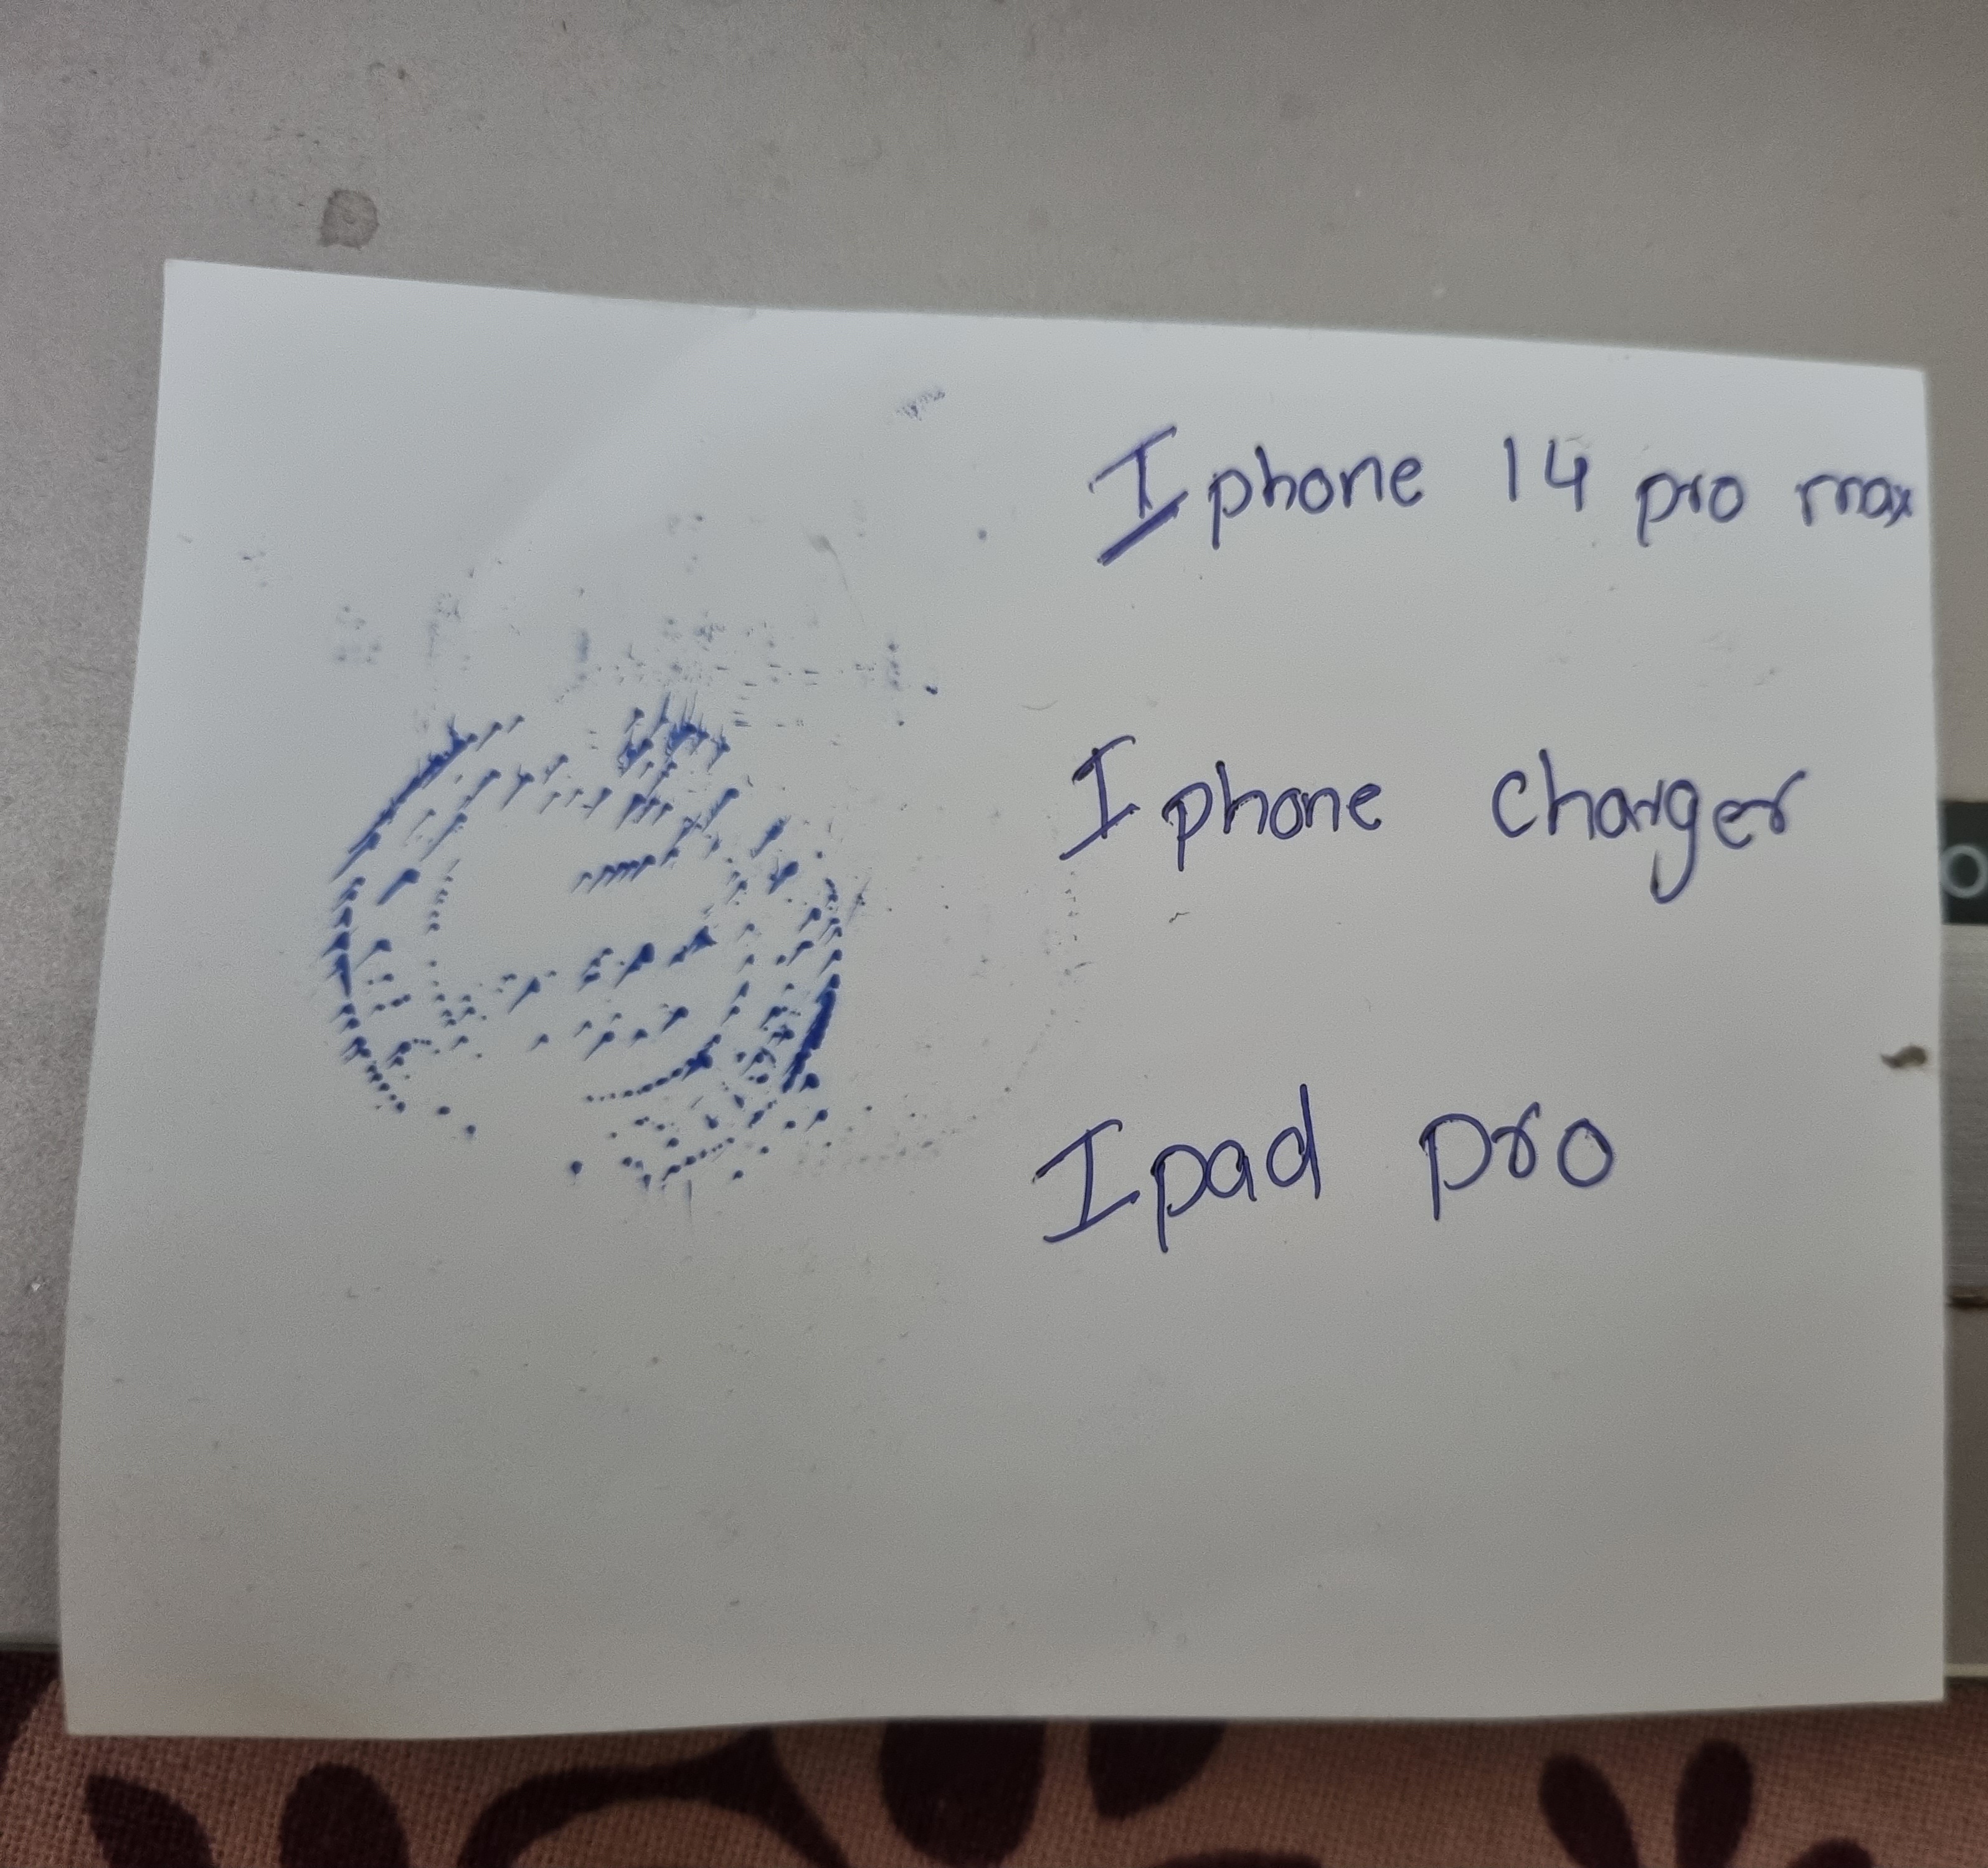 Iphone 14 pro max
Iphone charger
Ipad pro